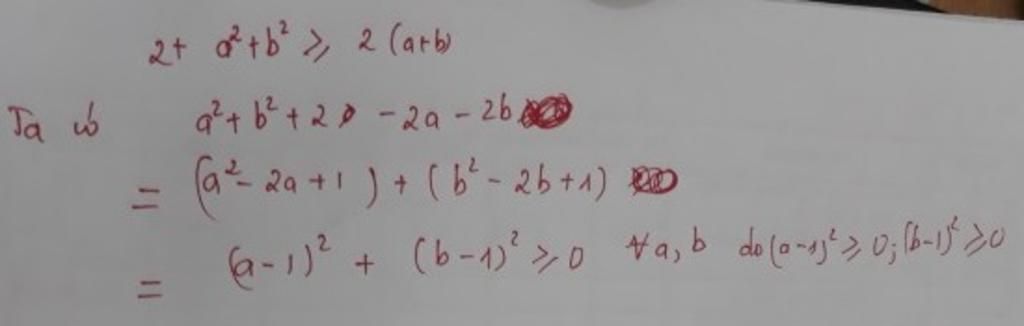 2 + a² + b² ≥ 2 (a+b)
Ta có a² + b² + 2 - 2a - 2b
= (a² - 2a + 1) + (b² - 2b + 1)
= (a - 1)² + (b - 1)² ≥ 0 ∀ a, b do (a-1)² ≥ 0; (b-1)² ≥ 0